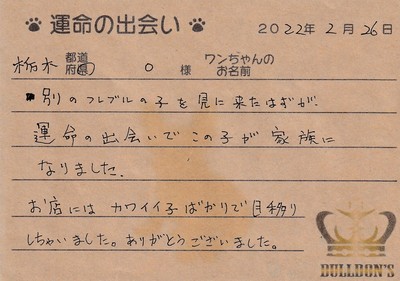 運命の出会い 2022年2月26日
栃木 都道府県 O 様 ワンちゃんのお名前
別のフレブルの子を見に来たはずが、
運命の出会いでこの子が家族に
なりました.
お店にはカワイイ子ばかりで目移り
しちゃいました。ありがとうございました。
BULLDON'S